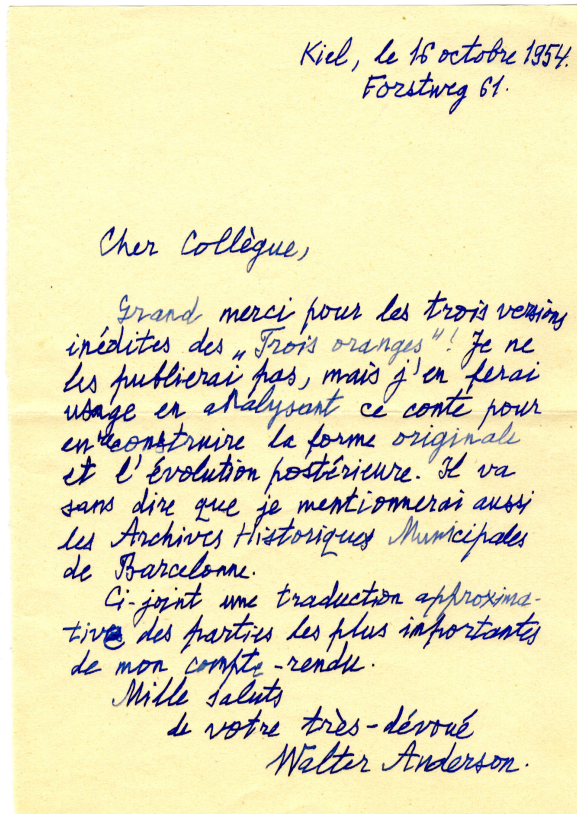 Kiel, le 16 octobre 1954.
Forstweg 61.
Cher Collègue,
Grand merci pour les trois versions
inédites des „Trois oranges"! Je ne
les publierai pas, mais j'en ferai
usage en analysant ce conte pour
en reconstruire la forme originale
et l'évolution postérieure. Il va
sans dire que je mentionnerai aussi
les Archives Historiques Municipales
de Barcelonne.
Ci-joint une traduction approxima-
tive des parties les plus importantes
de mon compte-rendu.
Mille saluts
de votre très-dévoué
Walter Anderson.